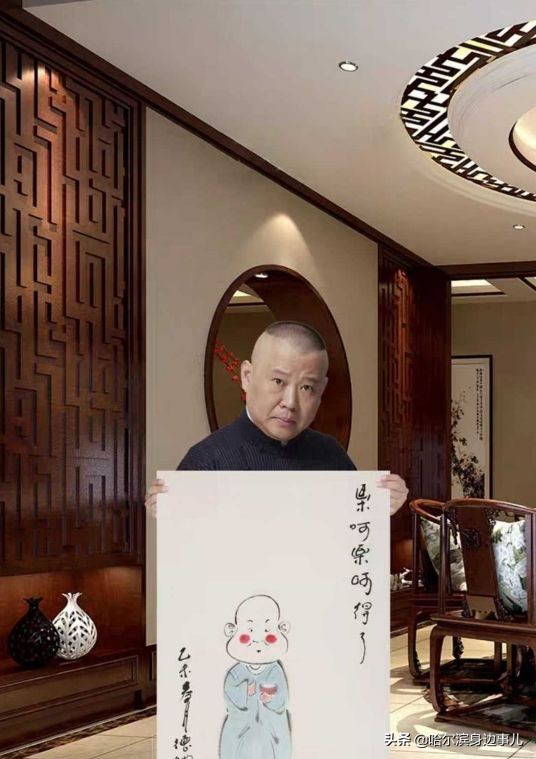 樂呵樂呵得了
乙未春月德
头条 @哈尔滨身边事儿